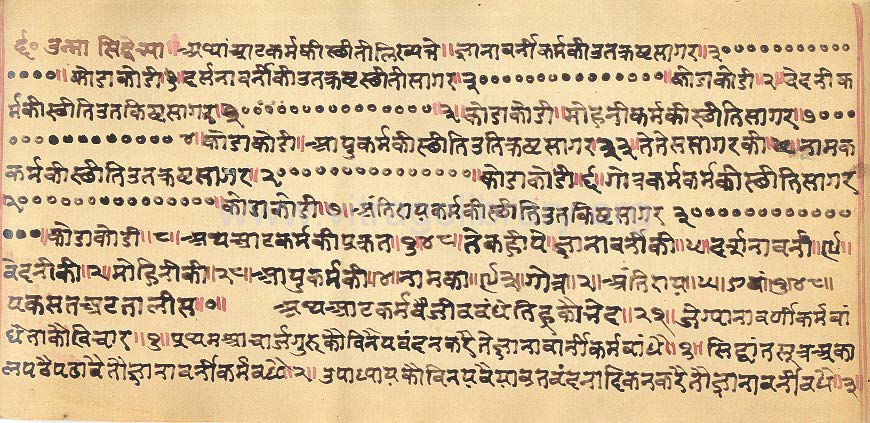 र्द० उन्मा सिद्वेभ्या॥अथांआटकर्मकीस्छीतीलिख्यते॥ज्ञानावर्नीकर्मकीउतक्रष्टसागर॥३००००००००००००
००००॥कोडाकोडी॥१दर्सनावर्नीकीउतक्रष्टस्छीतीसागर३००००००००००००००॥कोडाकोडी॥२॥वेदनीक
र्मकीस्छीतिउतकिष्टसागर३००००००००००००००॥३॥कोडाकोडी॥मोहनीकर्मकीस्छीतिसागर॥७०००
०००००००००००॥४॥कोडाकोडी॥आयुकर्मकीस्छीतिउतिक्रष्टसागर३३॥तेतेससागरकी॥५॥नामक
कर्मकीस्छीतिउतक्रष्टसागर॥२००००००००००००००॥कोडाकोडी॥६॥गोत्रकर्मकर्मकीस्छीतिसागर
२००००००००००००००॥कोडाकोडी॥७॥अंतिरायकर्मकीस्छीतिउतकिष्टसागर ३००००००००००
०००॥कोडाकोडी॥८॥अथआटकर्मकीप्रकत॥१४८॥तेकहीये॥ज्ञानावर्नीकी॥५॥दर्सनावर्नी॥९॥
वेदनीकी॥२॥मोहिनीकी॥२८॥आयुकर्मकी॥४॥नामका॥९३॥गोत्र॥२॥अंतिराय॥५॥१४८॥
यकसतअटतालीस॥०॥ अथआटकर्मवैजीवबंधेतिह्रकौभेद॥२२॥ज्ञेग्यानावर्णीकर्मबां
धैताकौविचार॥१॥प्रथमआचार्जगुरुकौविनैयवंदनकरैतेज्ञानावर्नीकर्मबांधै॥१॥सिद्धांतसूत्रअका
लपढैपढावैतौज्ञानावर्नीकर्मबधै॥२॥उपाध्यायकौविनयवैयाव्रतवंदनादिकनकरैतौज्ञानावर्नीबधै॥३